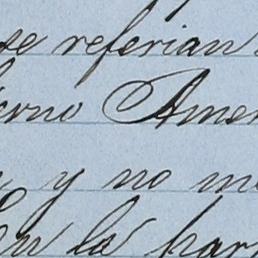 se referian
erno Amer
y no m
En la par